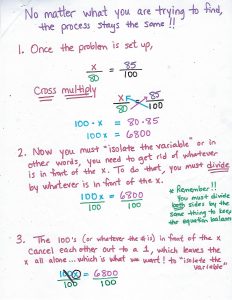 No matter what you are trying to find,
the process stays the same!!
1. Once the problem is set up,
x/80 = 85/100
Cross multiply
x/80 = 85/100
100 · x = 80 · 85
100x = 6800
2. Now you must "isolate the variable" or in
other words, you need to get rid of whatever
is in front of the x. To do that, you must divide
by whatever is in front of the x.
100x/100 = 6800/100
* Remember!!
You must divide
both sides by the
same thing to keep
the equation balanced
3. The 100's (or whatever the # is) in front of the x
cancel each other out to a 1, which leaves the
x all alone... which is what we want! to "isolate the
variable"
100x/100 = 6800/100